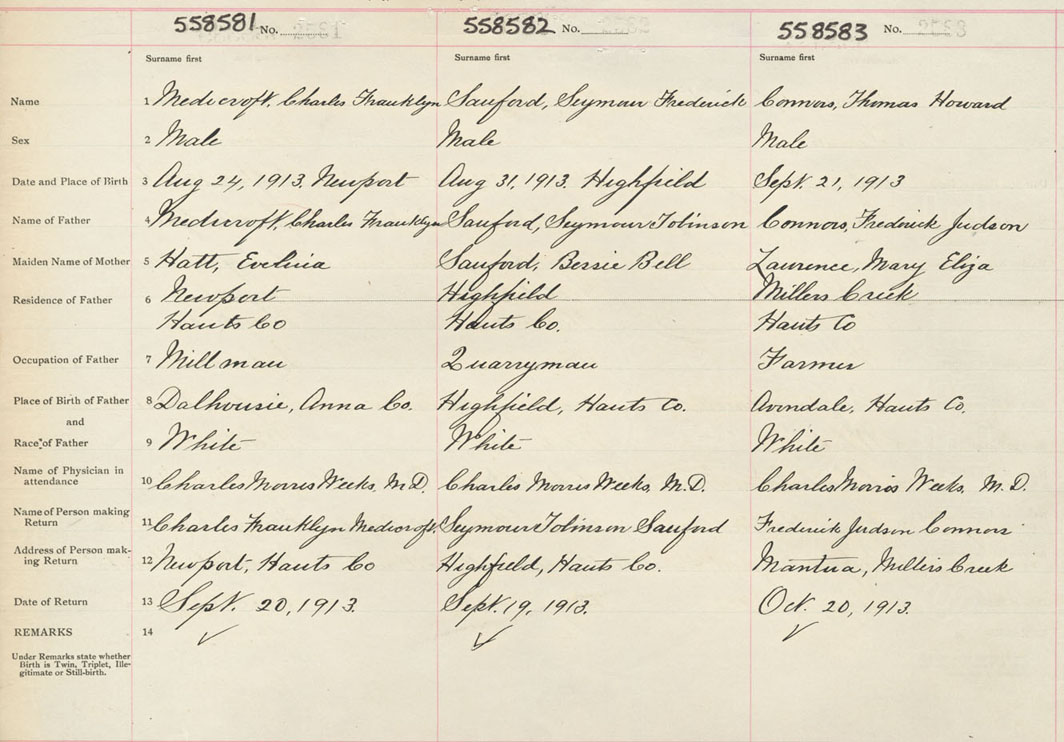 558581 No. 558582 No. 558583 No.
Surname first Surname first Surname first
Name 1 Medicroft, Charles Franklyn Sanford, Seymour Frederick Connors, Thomas Howard
Sex 2 Male Male Male
Date and Place of Birth 3 Aug 24, 1913. Newport Aug 31, 1913. Highfield Sept. 21, 1913
Name of Father 4 Medicroft, Charles Franklyn Sanford, Seymour Tolinson Connors, Frederick Judson
Maiden Name of Mother 5 Hatt, Evelina Sanford, Bessie Bell Lawrence, Mary Eliza
Residence of Father 6 Newport Highfield Millers Creek
Hants Co Hants Co. Hants Co
Occupation of Father 7 Millman Quarryman Farmer
Place of Birth of Father 8 Dalhousie, Anna Co. Highfield, Hants Co. Avondale, Hants Co.
and
Race of Father 9 White White White
Name of Physician in
attendance 10 Charles Morris Weeks, M.D. Charles Morris Weeks, M.D. Charles Morris Weeks, M.D.
Name of Person making
Return 11 Charles Franklyn Medicroft. Seymour Tolinson Sanford Frederick Judson Connors
Address of Person mak-
ing Return 12 Newport, Hants Co Highfield, Hants Co. Mantua, Millers Creek
Date of Return 13 Sept. 20, 1913. Sept. 19, 1913. Oct. 20, 1913.
REMARKS 14
Under Remarks state whether
Birth is Twin, Triplet, Ille-
gitimate or Still-birth.